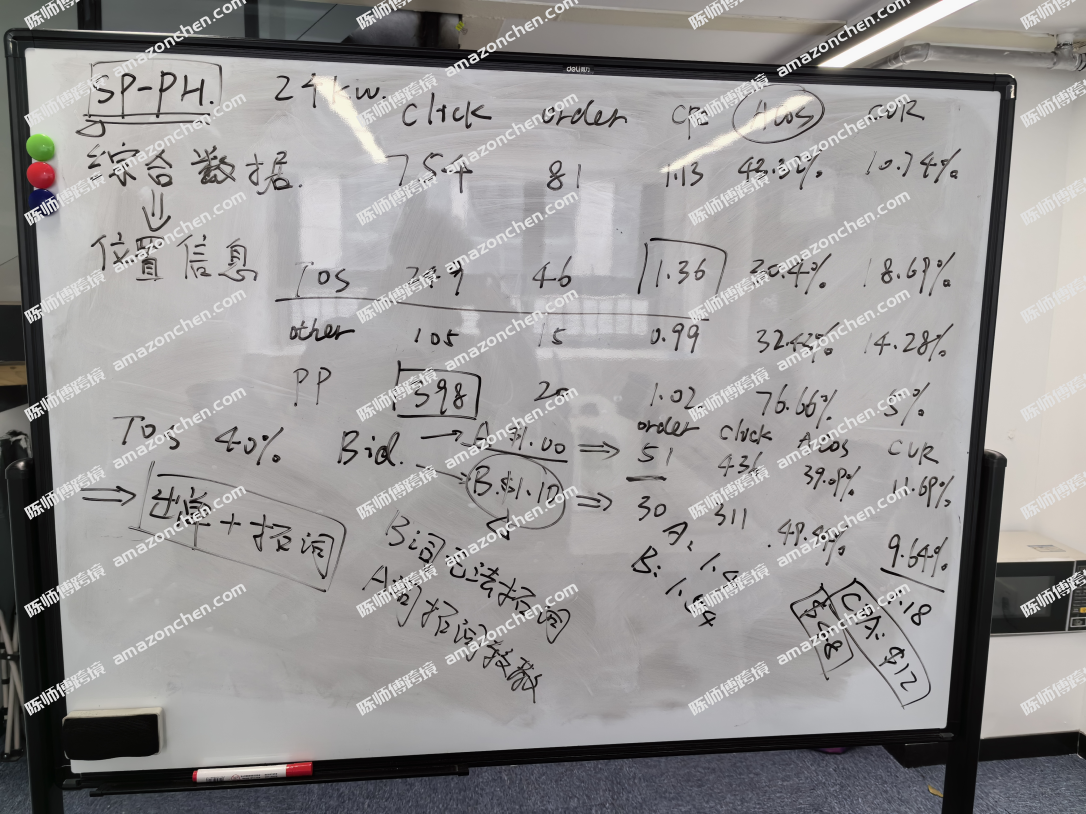 SP-PH. 24 kw.
click order CPC Acos CVR
综合数据. 754 81 1.13 43.32% 10.74%
位置信息
Tos 249 46 1.36 20.4% 18.69%
other 105 15 0.99 32.42% 14.28%
PP 398 20 1.02 76.66% 5%
order click Acos CVR
Tos 40% Bid. → A $1.00 ⇒ 51 436 39.09% 11.69%
→ B. $1.10 ⇒ 30 311 49.4% 9.64%
⇒ 出单+拓词
B词无法拓词
A词拓词较散
A,
B: 1.54
CPA: $12
deli
陈师博跨境 amazonchen.com